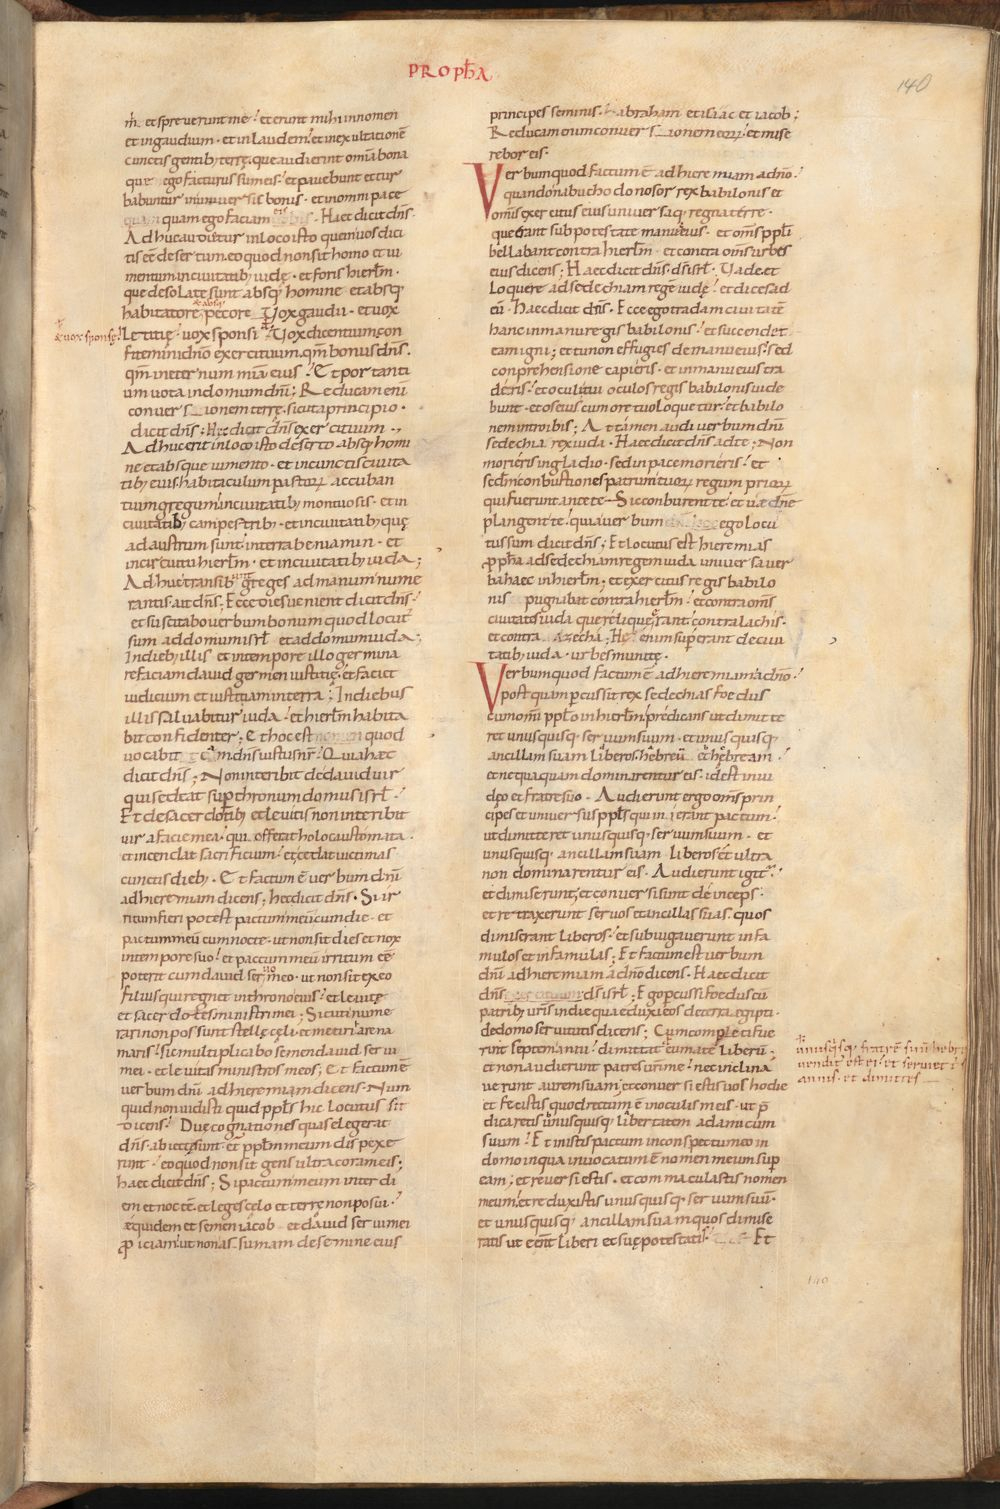 PROPhA
140
m̄. et spreverunt me; et erunt mihi in nomen
et in gaudium. et in laudem et in exultationē
cunctis gentib; terrę. que audierint omīa bona
que ego facturus sum eis. et pavebunt et tur
babuntur in universis bonis. et in omni pace
quam ego faciam eis. Haec dicit dn̄s.
Adhuc audietur in loco isto quem vos dici
tis eē desertum. eo quod non sit homo et iu
mentum in civitatib; iudę. et foris hierl̄m.
que desolate sunt absq; homine et absq;
habitatore & absq; pecore. Vox gaudii. et vox
& vox sponsę
letitię. vox sponsi Vox dicentium con
fitemini dn̄o exercituum. qm̄ bonus dn̄s.
qm̄ in eternum mīa eius. Et portanti
um vota in domum dn̄i; Reducam enī
conversionem terrę. sicut a principio.
dicit dn̄s; Hęc dicit dn̄s exercituum.,
Adhuc erit in loco isto deserto absq; homi
ne et absque iumento. et in cunctis civita
tib; eius. habitaculum pastorꝝ accuban
tium gregum in civitatib; montuosis. et in
civitatib; campestrib;. et in civitatib; quę
ad austrum sunt. in terra beniamin. et
in circuitu hierl̄m. et in civitatib; iuda;
Adhuc transibunt greges ad manum nume
rantis. ait dn̄s; Ecce dies venient dicit dn̄s.
et suscitabo verbum bonum quod locut'
sum ad domum isrl̄ et ad domum iuda;
In dieb; illis et in tempore illo germina
re faciam david germen iustitię. et faciet
iudicium et iustitiam in terra; In diebus
illis salvabitur iuda. et hierl̄m habita
bit confidenter; Et hoc est nomen quod
vocabit eum dn̄s iustus nr̄. Quia haec
dicit dn̄s; Non interibit de david vir
qui sedeat sup thronum domus isrl̄.
Et de sacerdotib; et levitis non interibit
vir a facie mea. qui offerat holocaustomata.
et incendat sacrificium. et cedat victimas
cunctis dieb;. Et factum ē verbum dn̄i
ad hieremiam dicens; hęc dicit dn̄s. Si ir
ritum fieri potest pactum meū cum die. et
pactum meū cum nocte. ut non sit dies et nox
in tempore suo. et pactum meū irritum eē
poterit cum david servo meo. ut non sit ex eo
filius qui regnet in throno eius. et levitę
et sacerdotes ministri mei; Sicuti nume
rari non possunt stellę cęli. et metiri arena
maris. sic multiplicabo semen david servi
mei. et levitas ministros meos; Et factumē
verbum dn̄i ad hieremiam dicens. Num
quid non vidisti quid ppl̄s hic locutus sit
dicens. Duę cognationes quas elegerat
dn̄s. abiectę sunt. et ppl̄m meum dispexe
runt. eo quod non sit gens ultra coram eis;
haec dicit dn̄s; Si pactum meum inter di
em et noctē. et leges cęlo et terre non posui.
equidem et semen iacob. et david servi mei
ꝓiciam. ut non assumam de semine eius
principes seminis. abraham et isaac et iacob;
Reducam enim conversionem eorꝝ. et mise
rebor eis.
Verbum quod factum ē ad hieremiam a dn̄o.
quando nabuchodonosor rex babilonis et
om̄s exercitus eius universaq; regna terre.
que erant sub potestate manus eius. et om̄s ppl̄i
bellabant contra hierl̄m. et contra om̄s urbes
eius dicens; Haec dicit dn̄s. ds̄ isrl̄. Vade et
loquere ad sedechiam regē iudę. et dices ad
eū. Haec dicit dn̄s. Ecce ego tradam civitatē
hanc in manu regis babilonis. et succendet
eam igni; et tu non effugies de manu eius. sed
conprehensione capieris. et in manu eius tra
deris. et oculi tui oculos regis babilonis vide
bunt. et os eius cum ore tuo loquetur. et babilo
nem introibis; Attamen audi verbum dn̄i
sedechia rex iuda. Haec dicit dn̄s ad te; Non
morieris in gladio. sed in pace morieris. et
sedm̄ conbustiones patrum tuorꝝ regum priorꝝ
qui fuerunt ante te. Sic conburent te. et væ dn̄e
plangent te. quia verbum ego locu
tus sum dicit dn̄s; Et locutus est hieremias
ꝓpha ad sedechiam regem iuda universa ver
ba haec in hierl̄m; et exercitus regis babilo
nis pugnabat contra hierl̄m. et contra om̄s
civitates iuda que relique erant. contra lachis.
et contra azecha; Hę enim superant de civi
tatib; iuda. urbes munitę.
Verbum quod factum ē ad hieremiam a dn̄o.
postquam percussit rex sedechias foedus
cum omī ppl̄o in hierl̄m. predicans ut dimitte
ret unusquisq; servum suum. et unusquisq;
ancillam suam. liberos. hebreū et hebream.
et nequaquam dominarentur eis. id est in iu
dęo et fratre suo. Audierunt ergo om̄s prin
cipes et universus ppl̄s qui inierant pactum.
ut dimitteret unusquisq; servum suum. et
unusquisq; ancillam suam liberos. et ultra
non dominarentur eis. Audierunt igit'.
et dimiserunt; et conversi sunt deinceps.
et retraxerunt servos et ancillas suas. quos
dimiserant liberos. et subiugaverunt in fa
mulos et in famulas; Et factum est verbum
dn̄i ad hieremiam a dn̄o dicens. Haec dicit
dn̄s ds̄ isrl̄; Ego percussi foedus cū
patrib; vr̄is in die qua eduxi eos de terra egipti.
de domo servitutis dicens; Cum completi fue
rint septem anni. dimittat eum atē liberū;
unusq̄sq; fratrē suū hebr
vendit' est ei. et serviet
annis. et dimittes
et non audierunt patres vr̄i me. nec inclina
verunt aurem suam; et conversi estis vos hodie
et fecistis quod rectum ē in oculis meis. ut p̄
dicaretis unusquisq; libertatem ad amicum
suum. Et inistis pactum in conspectu meo in
domo in qua invocatum ē nomen meum sup
eam; et reversi estis. et commaculastis nomen
meum. et reduxistis unusquisq; servum suū.
et unusquisq; ancillam suam quos dimise
ratis ut eēnt liberi et suę potestatis. Et
140